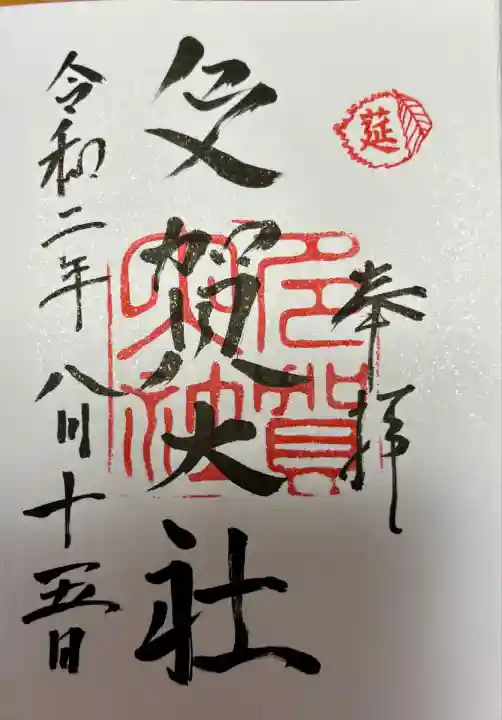 莚
奉拝
多賀大社
多賀
大社
令和二年八月十五日